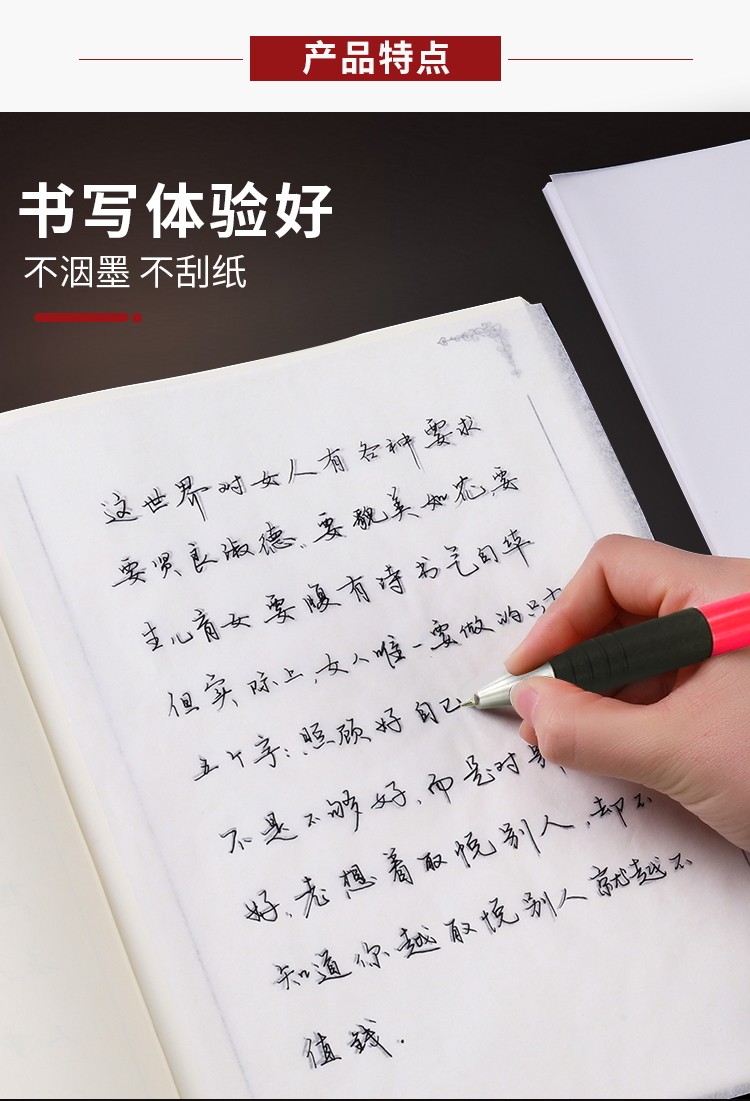 产品特点
书写体验好
不洇墨 不刮纸
这世界对女人有各种要求
要贤良淑德、要貌美如花,要
生儿育女要腹有诗书气自华
但实际上,女人唯一要做的只
五个字:照顾好自己
不是不够好,而是对
好,老想着取悦别人,却不
知道你越取悦别人就越不
值钱.